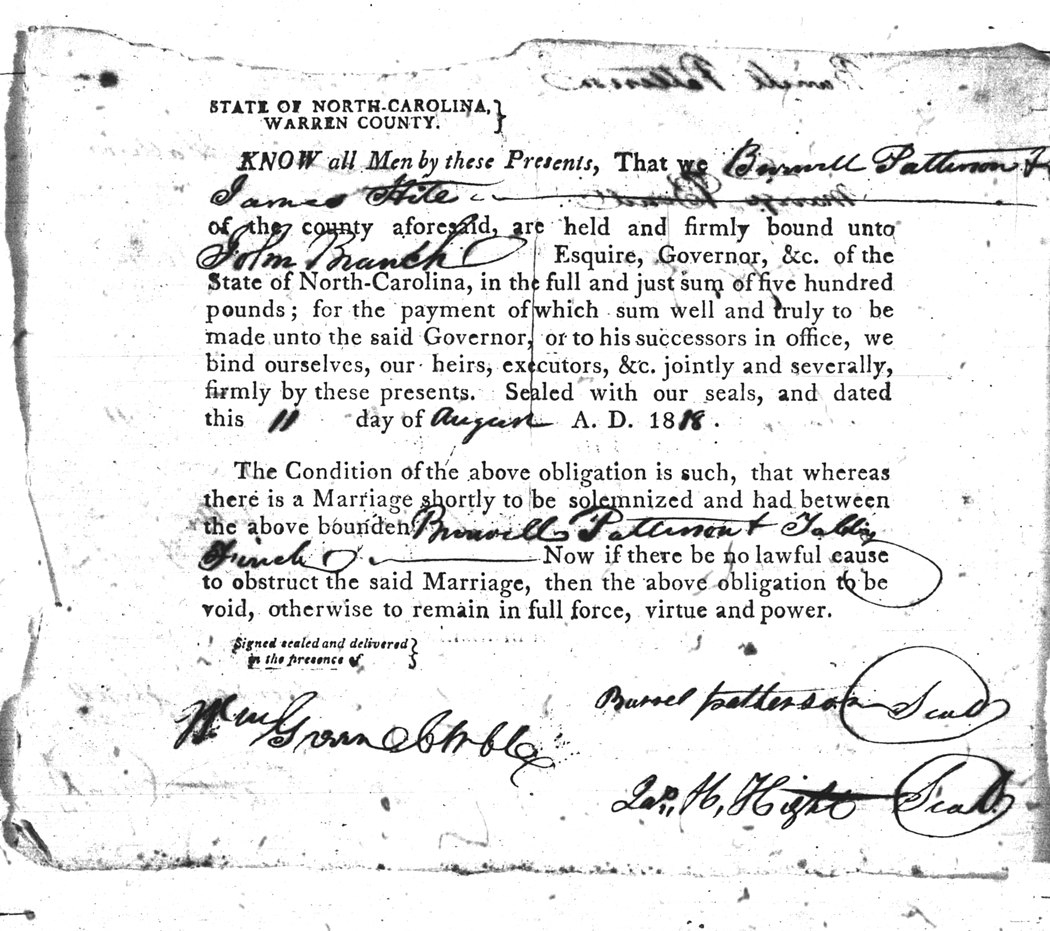 STATE OF NORTH-CAROLINA,
WARREN COUNTY.
KNOW all Men by these Presents, That we Burwell Patterson &
James Hite
of the county aforesaid, are held and firmly bound unto
John Branch Esquire, Governor, &c. of the
State of North-Carolina, in the full and just sum of five hundred
pounds; for the payment of which sum well and truly to be
made unto the said Governor, or to his successors in office, we
bind ourselves, our heirs, executors, &c. jointly and severally,
firmly by these presents. Sealed with our seals, and dated
this 11 day of August A. D. 1818.
The Condition of the above obligation is such, that whereas
there is a Marriage shortly to be solemnized and had between
the above bounden Burwell Patterson &
Finch Now if there be no lawful cause
to obstruct the said Marriage, then the above obligation to be
void, otherwise to remain in full force, virtue and power.
Signed sealed and delivered
in the presence of
Burrel patterson Seal
Wm Green
Jas, H, Hight Seal